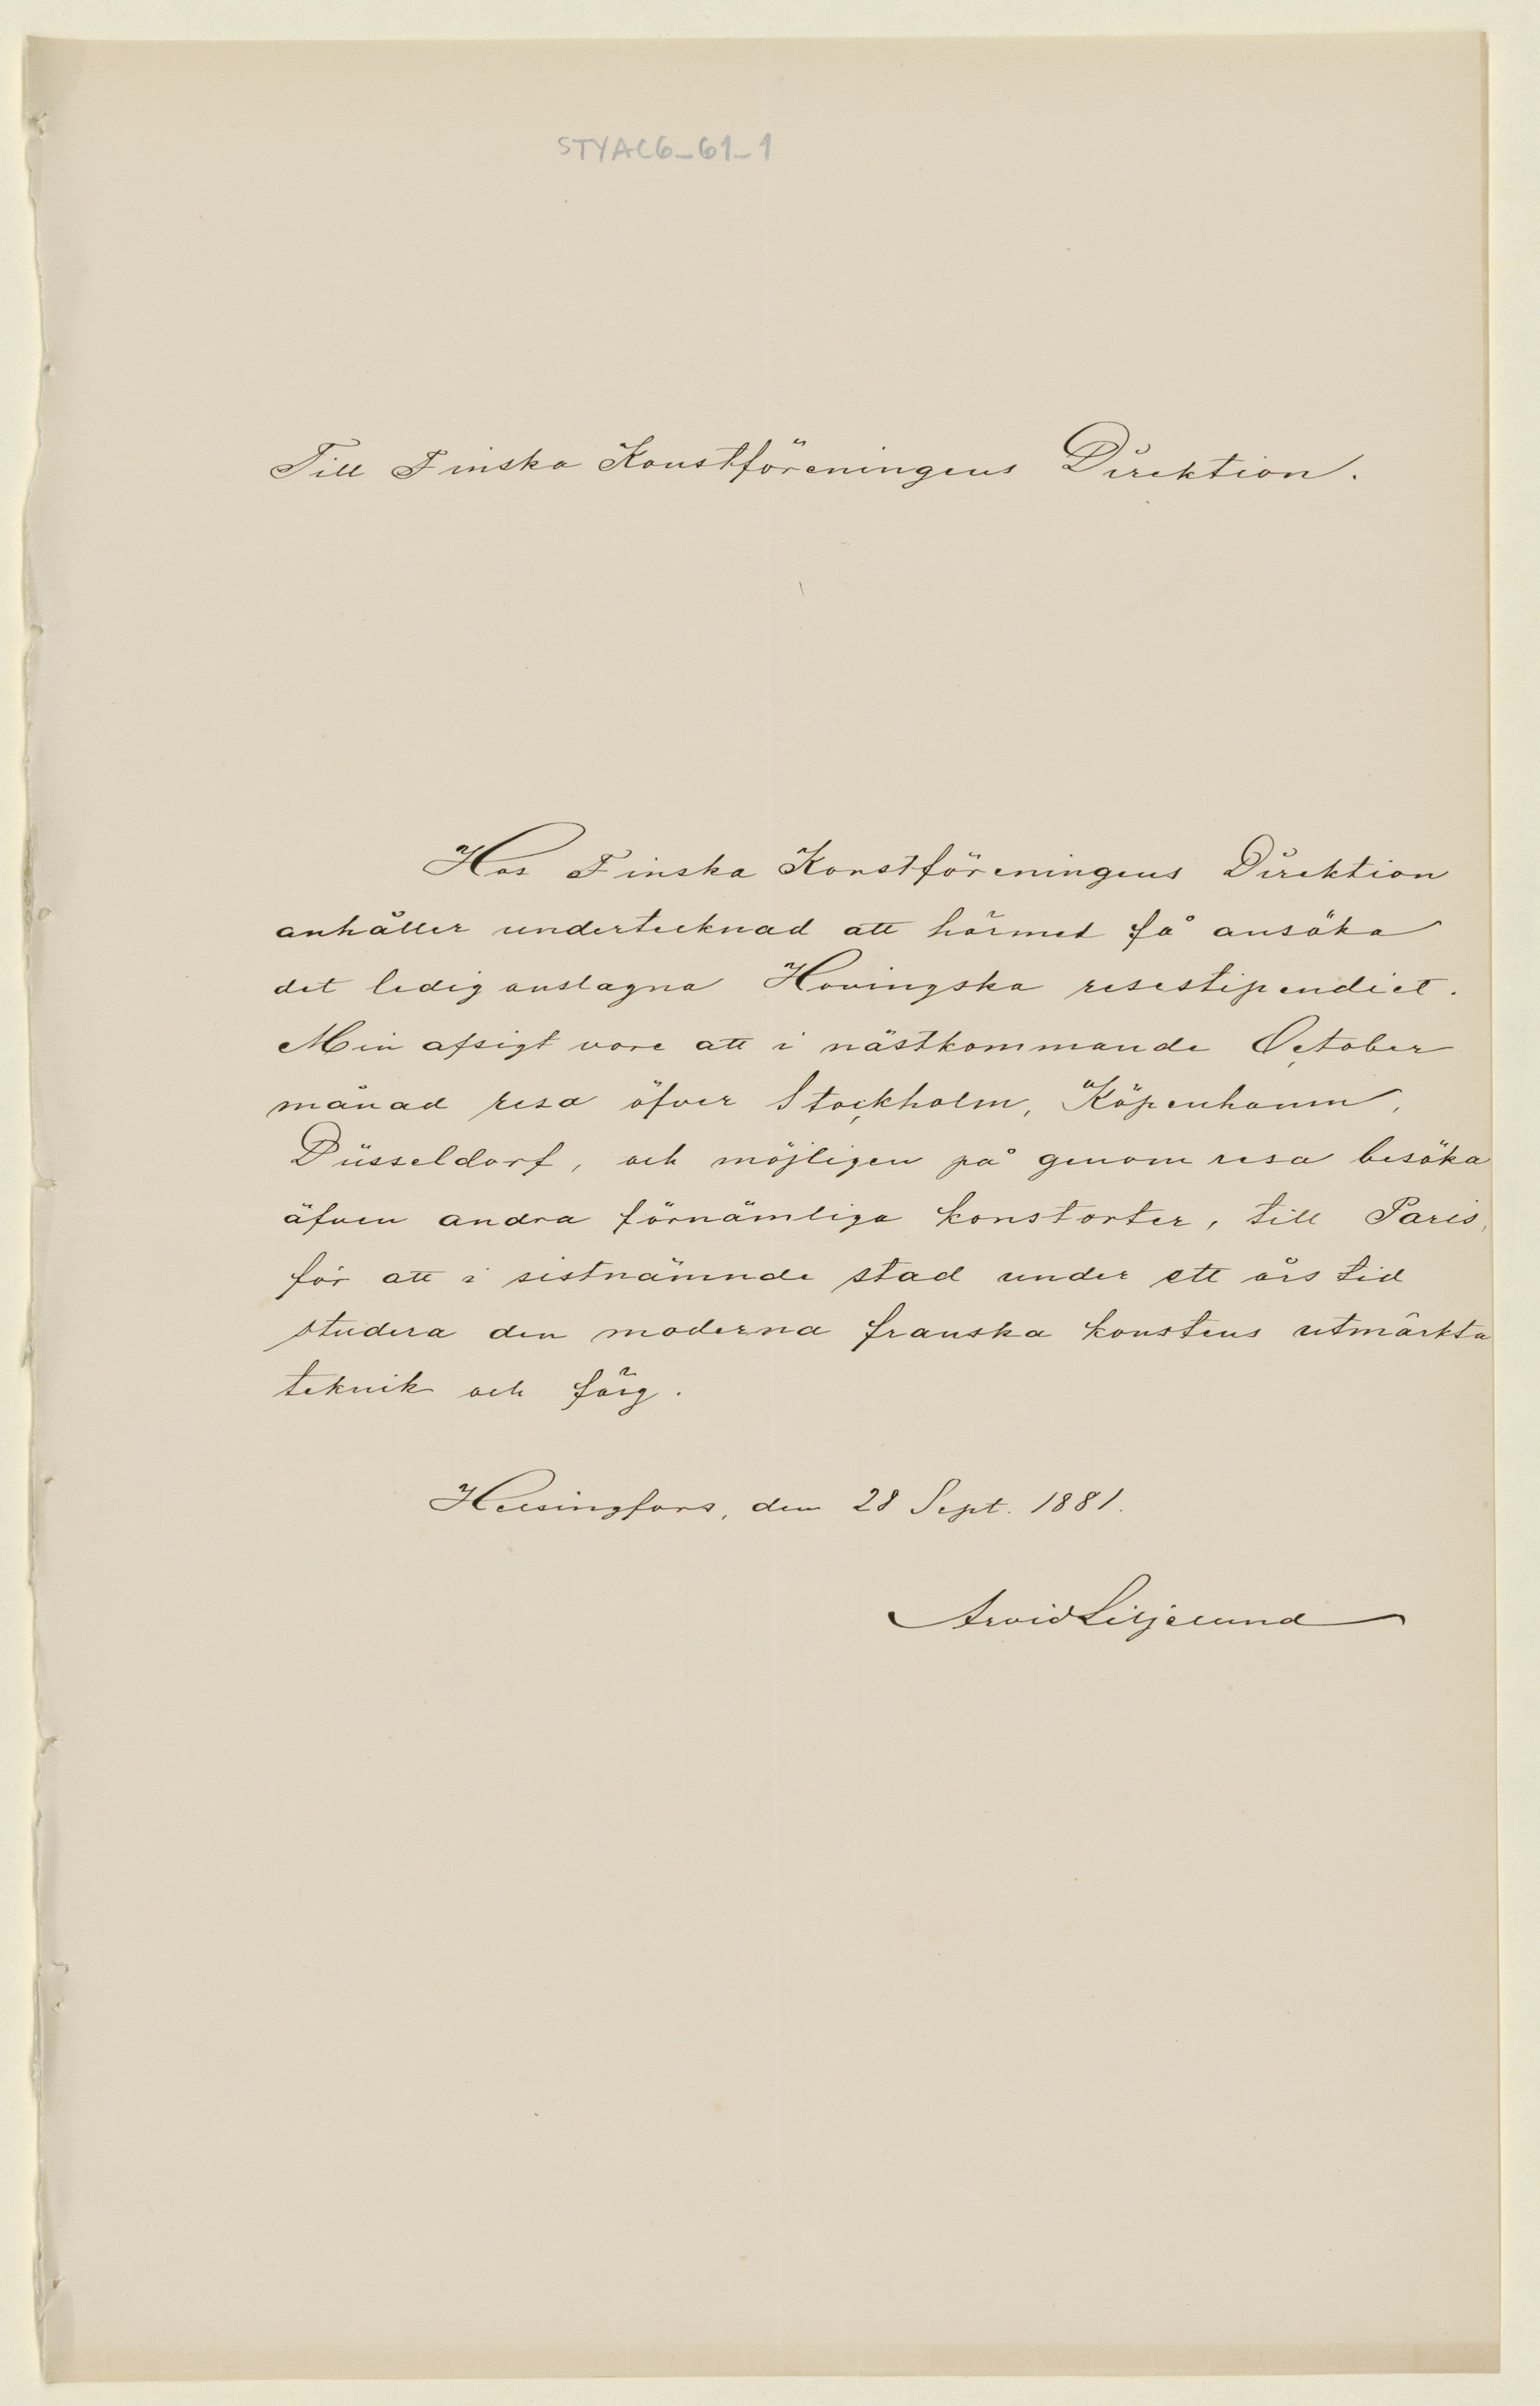 STYAC6_61_1
Till Finska Konstföreningens Direktion.
Hos Finska Konstföreningens Direktion
anhåller undertecknad att härmed få ansöka
det ledig anslagna Hovingska resestipendiet.
Min afsigt vore att i nästkommande October
månad resa öfver Stockholm, Köpenhamn,
Düsseldorf, och möjligen på genomresa besöka
äfven andra förnämliga konstorter, till Paris,
för att i sistnämnde stad under ett års tid
studera den moderna franska konstens utmärkta
teknik och färg.
Helsingfors, den 28 Sept. 1881.
Arvid Liljelund